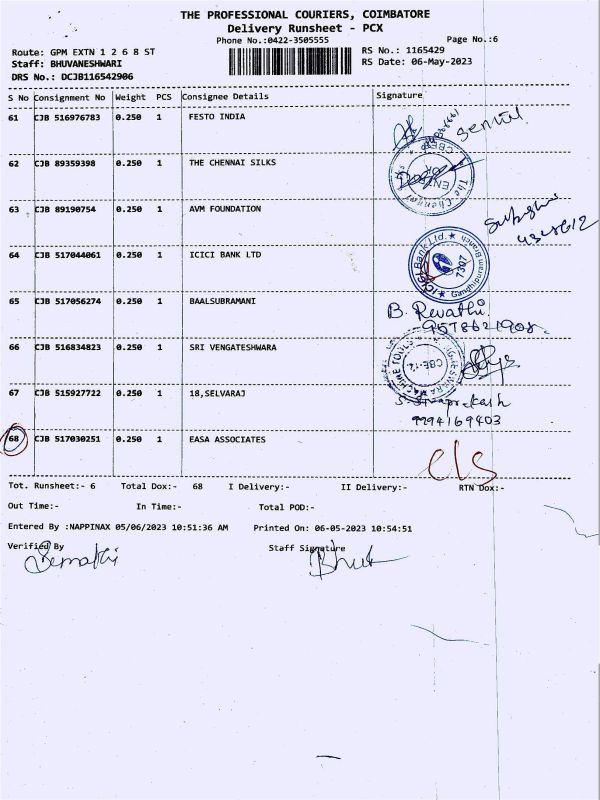 THE PROFESSIONAL COURIERS, COIMBATORE
Delivery Runsheet - PCX
Phone No.:0422-3505555
Page No.:6
Route: GPM EXTN 1 2 6 8 ST
RS No.: 1165429
Staff: BHUVANESHWARI
RS Date: 06-May-2023
DRS No.: DCJB116542906
S No Consignment No Weight PCS Consignee Details Signature
61 CJB 516976783 0.250 1 FESTO INDIA
62 CJB 89359398 0.250 1 THE CHENNAI SILKS
The Chennai
63 CJB 89190754 0.250 1 AVM FOUNDATION
64 CJB 517044061 0.250 1 ICICI BANK LTD
ICICI Bank Ltd. Gandhipuram Branch
1307
65 CJB 517056274 0.250 1 BAALSUBRAMANI
B. Revathi
9578621908
66 CJB 516834823 0.250 1 SRI VENGATESHWARA
67 CJB 515927722 0.250 1 18,SELVARAJ
S. Sivaprakash
9994169403
68 CJB 517030251 0.250 1 EASA ASSOCIATES
Tot. Runsheet:- 6 Total Dox:- 68 I Delivery:- II Delivery:- RTN Dox:-
Out Time:- In Time:- Total POD:-
Entered By :NAPPINAX 05/06/2023 10:51:36 AM Printed On: 06-05-2023 10:54:51
Verified By Staff Signature